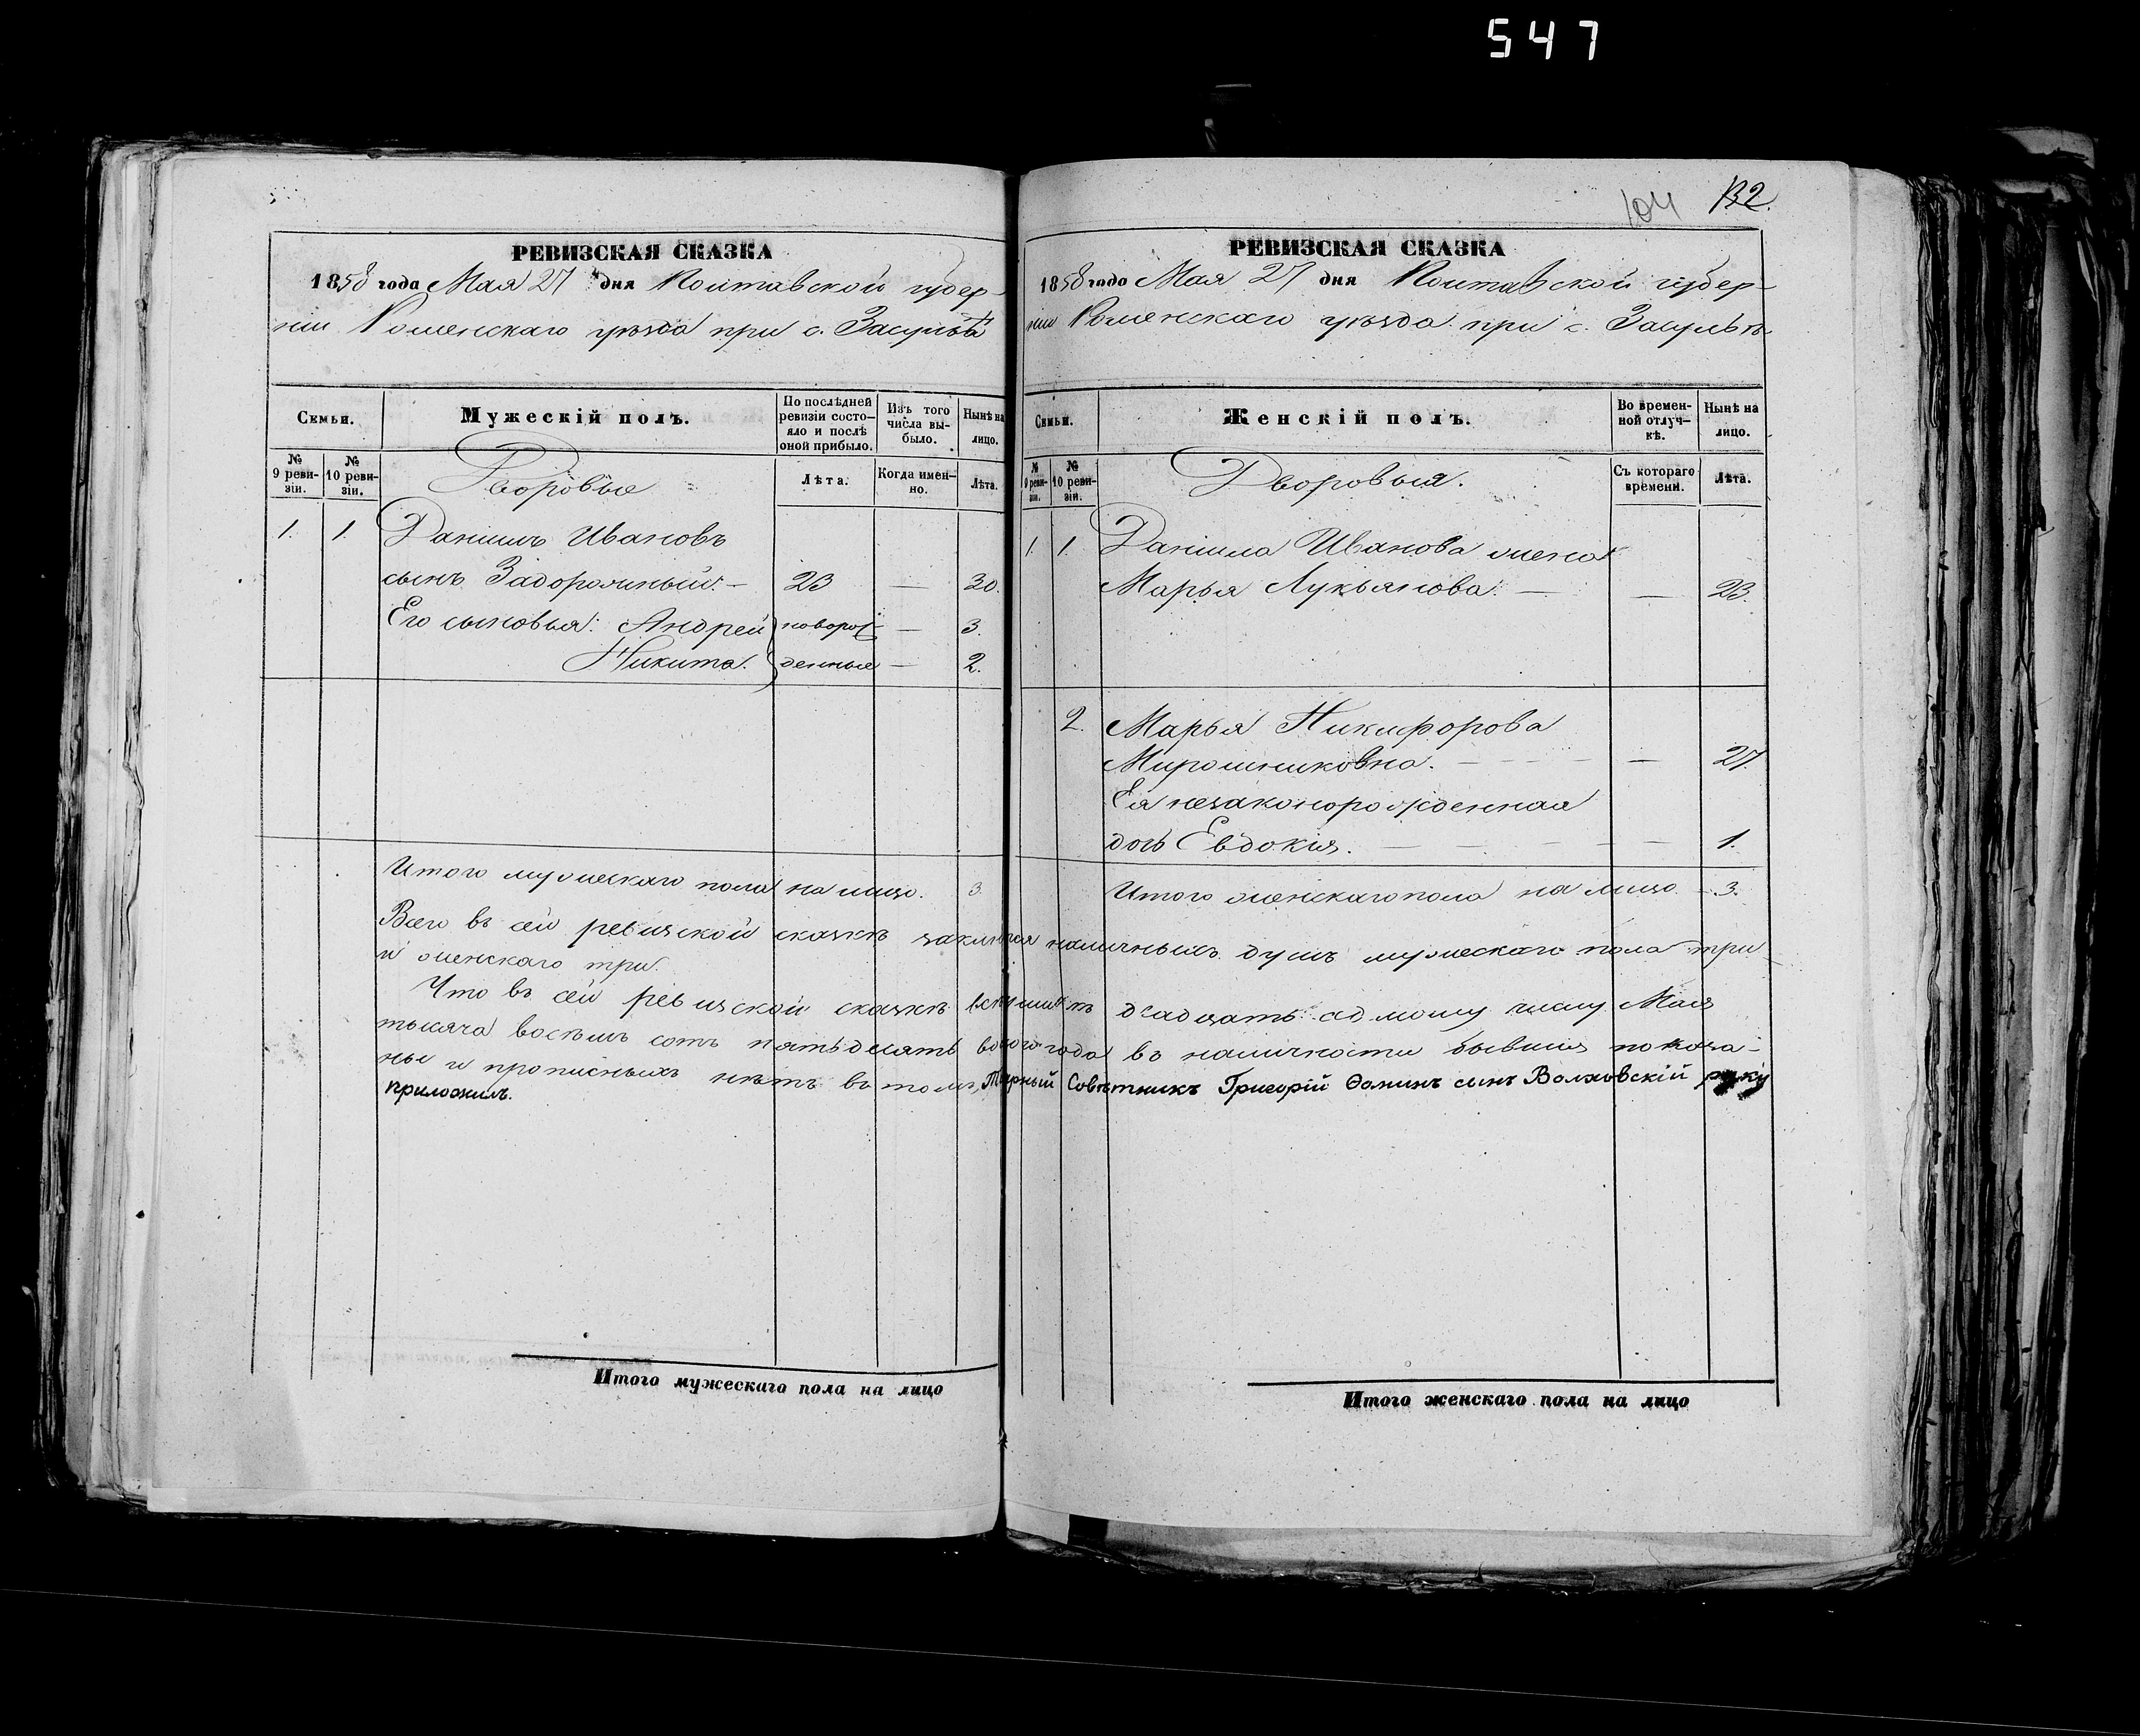 547
104 132.
РЕВИЗСКАЯ СКАЗКА
1858 года Мая 27 дня Полтавской губер-
ніи Роменскаго уѣзда при с. Засульѣ
Семьи.
Мужескій полъ.
По послѣдней ревизіи состо-яло и послѣ оной прибыло.
Изъ того числа вы-было.
Нынѣ на лицо.
№ 9 реви-зіи.
№ 10 реви-зіи.
Дворовые
Лѣта.
Когда имен-но.
Лѣта.
1. 1. Даніилъ Ивановъ
сынъ Задорожный. – 23 — 30.
Его сыновья: Андрей новорож- — 3.
Никита. денные — 2.
Итого мужескаго пола на лицо. 3
РЕВИЗСКАЯ СКАЗКА
1858 года Мая 27 дня Полтавской губер-
ніи Роменскаго уѣзда при с. Засульѣ
Семьи.
Женскій полъ.
Во времен-ной отлуч-кѣ.
Нынѣ на лицо.
№ 9 реви-зіи.
№ 10 реви-зіи.
Дворовыя.
Съ котораго времени.
Лѣта.
1. 1. Даніила Иванова жена
Марья Лукьянова. — — 23.
2. Марья Никифорова
Мирошниковна. — — 27.
Ея незаконорожденная
дочь Евдокія. — — 1.
Итого женскаго пола на лицо – 3.
Всего въ сей ревизской сказкѣ наличныхъ душъ мужескаго пола три
и женскаго три.
Что въ сей ревизской сказкѣ всѣ двадцать седмому числу Мая
тысяча восемь сотъ пятьдесятъ года въ наличности бывшія показа-
ны и прописныхъ нѣтъ въ томъ, Совѣтникъ Григорій Ѳоминъ сынъ Волховскій руку
приложилъ.
Итого мужескаго пола на лицо
Итого женскаго пола на лицо